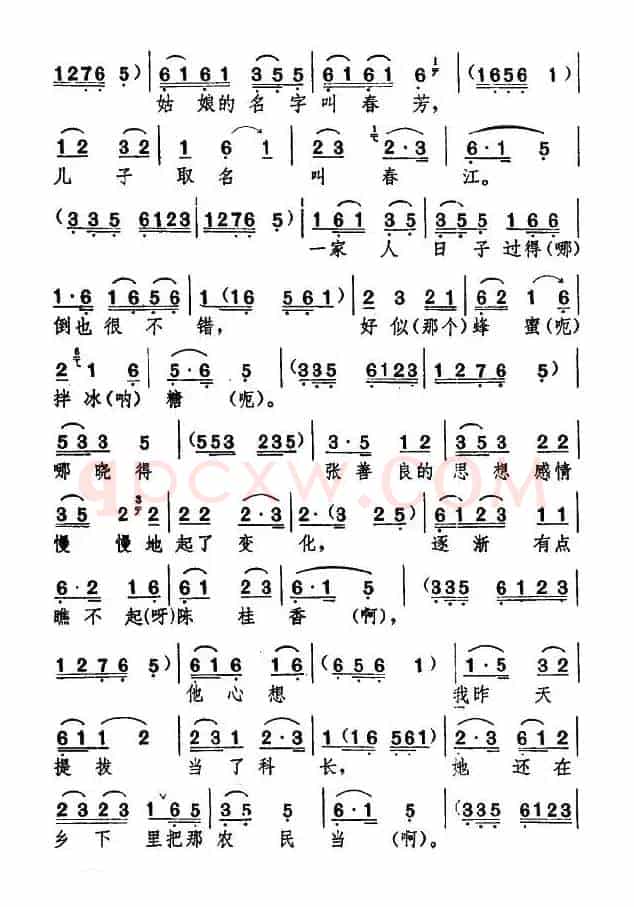 1276 5) | 6161 355 | 6161 6 | (1656 1) |
姑 娘的 名 字 叫 春 芳，
12 32 | 1 6 1 | 23 2·3 | 6·1 5 |
儿 子 取 名 叫 春 江。
(335 6123 | 1276 5) | 161 35 | 355 166 |
一家 人 日 子 过得(哪)
1·6 1656 | 1 (16 561) | 2 3 21 | 62 1 6 |
倒也 很 不 错， 好 似(那个)蜂 蜜(呃)
2 1 6 | 5·6 5 | (335 6123 | 1 276 5) |
拌 冰(呐) 糖 (呃)。
533 5 | (553 235) | 3·5 12 | 353 22 |
哪 晓 得 张 善 良的 思 想 感情
35 2·2 | 22 2·3 | 2·(3 25) | 6123 11 |
慢 慢地 起了 变 化， 逐 渐 有点
6·2 16 | 61 23 | 6·1 5 | (335 6123 |
瞧不 起(呀)陈 桂 香 (啊)，
1276 5) | 616 16 | (656 1) | 1·5 32 |
他 心 想 我昨 天
611 2 | 231 2·3 | 1 (16 561) | 2·3 612 |
提 拔 当 了 科 长， 她 还 在
2323 1·65 | 35 5 | 6·1 5 | (335 6123 |
乡 下 里把那 农 民 当 (啊)。
qpcxw.com